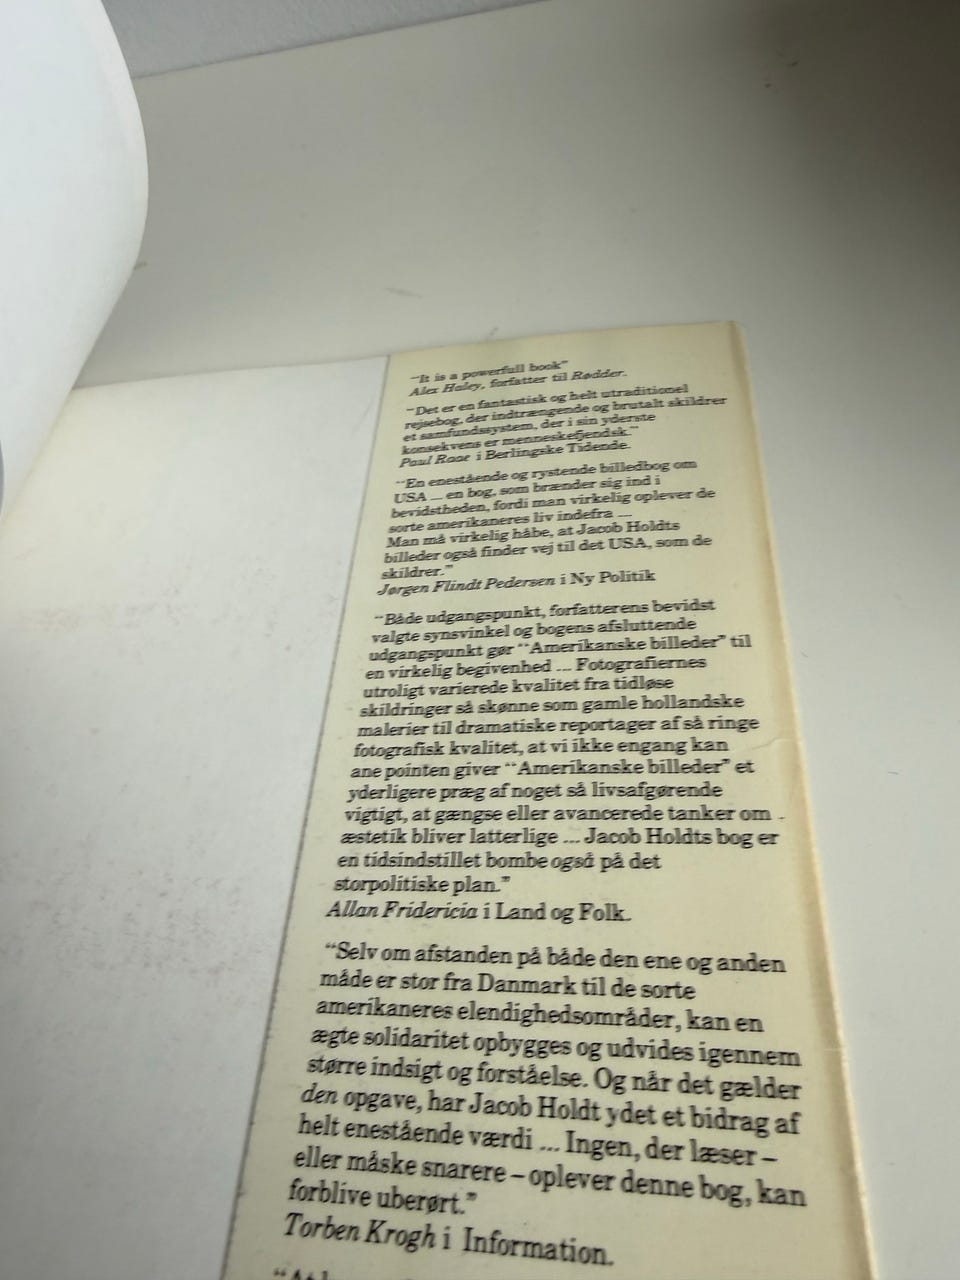 "It is a powerfull book"
Alex Haley, forfatter til Rødder.
"Det er en fantastisk og helt utraditionel
rejsebog, der indtrængende og brutalt skildrer
et samfundssystem, der i sin yderste
konsekvens er menneskefjendsk."
Paul Rane i Berlingske Tidende.
"En enestående og rystende billedbog om
USA ... en bog, som brænder sig ind i
bevidstheden, fordi man virkelig oplever de
sorte amerikaneres liv indefra ...
Man må virkelig håbe, at Jacob Holdts
billeder også finder vej til det USA, som de
skildrer."
Jørgen Flindt Pedersen i Ny Politik
"Både udgangspunkt, forfatterens bevidst
valgte synsvinkel og bogens afsluttende
udgangspunkt gør "Amerikanske billeder" til
en virkelig begivenhed ... Fotografiernes
utroligt varierede kvalitet fra tidløse
skildringer så skønne som gamle hollandske
malerier til dramatiske reportager af så ringe
fotografisk kvalitet, at vi ikke engang kan
ane pointen giver "Amerikanske billeder" et
yderligere præg af noget så livsafgørende
vigtigt, at gængse eller avancerede tanker om
æstetik bliver latterlige ... Jacob Holdts bog er
en tidsindstillet bombe også på det
storpolitiske plan."
Allan Fridericia i Land og Folk.
"Selv om afstanden på både den ene og anden
måde er stor fra Danmark til de sorte
amerikaneres elendighedsområder, kan en
ægte solidaritet opbygges og udvides igennem
større indsigt og forståelse. Og når det gælder
den opgave, har Jacob Holdt ydet et bidrag af
helt enestående værdi ... Ingen, der læser –
eller måske snarere – oplever denne bog, kan
forblive uberørt."
Torben Krogh i Information.